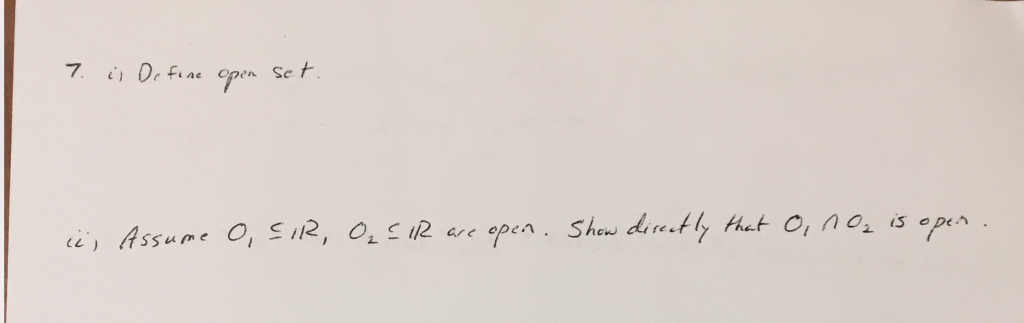 7. i) Define open set.
ii) Assume O₁ ⊆ ℝ, O₂ ⊆ ℝ are open. Show directly that O₁ ∩ O₂ is open.